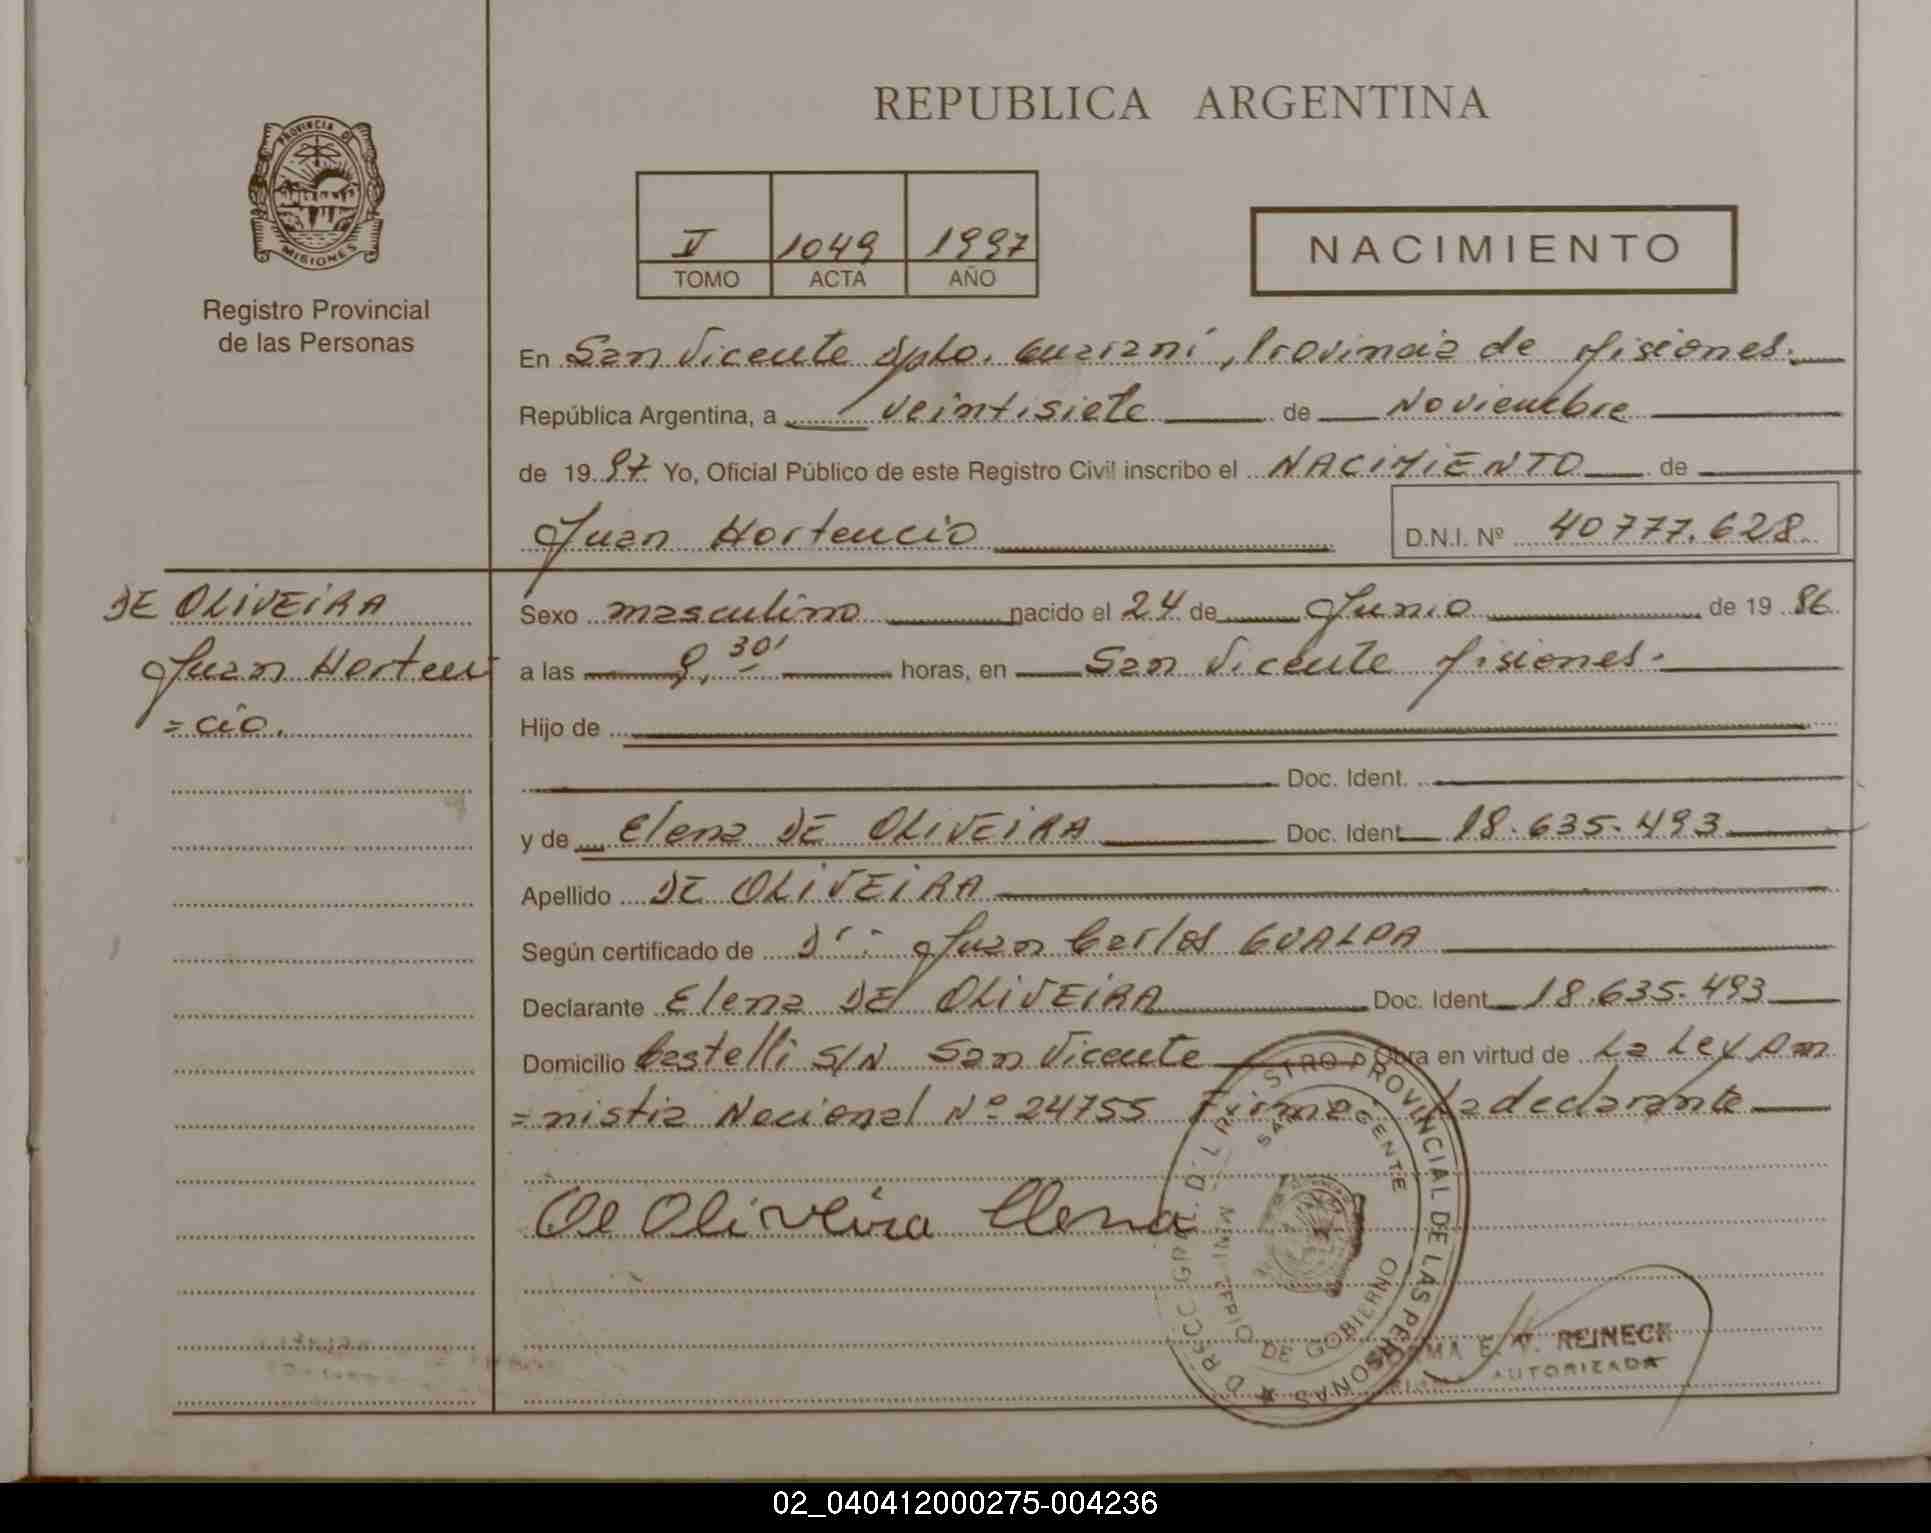 REPUBLICA ARGENTINA
PROVINCIA DE
MISIONES
Registro Provincial
de las Personas
V 1049 1997
TOMO ACTA AÑO
NACIMIENTO
En San Vicente Dpto. Guaraní, Provincia de Misiones.
República Argentina, a veintisiete de Noviembre
de 1997 Yo, Oficial Público de este Registro Civil inscribo el NACIMIENTO de
Juan Hortencio D.N.I. Nº 40777.628
DE OLIVEIRA
Juan Horten
=cio.
Sexo masculino nacido el 24 de Junio de 1986
a las 9,30' horas, en San Vicente Misiones.
Hijo de
Doc. Ident.
y de Elena DE OLIVEIRA Doc. Ident 18.635.493
Apellido DE OLIVEIRA
Según certificado de Dr: Juan Carlos GUALPA
Declarante Elena DE OLIVEIRA Doc. Ident 18.635.493
Domicilio Castelli S/N San Vicente Obra en virtud de La Ley Am
=nistia Nacional Nº 24755 Firma: La declarante
De Oliveira Elena
PROVINCIAL DE LAS PERSONAS
DE GOBIERNO
E. V. REINECK
AUTORIZADA
02_040412000275-004236